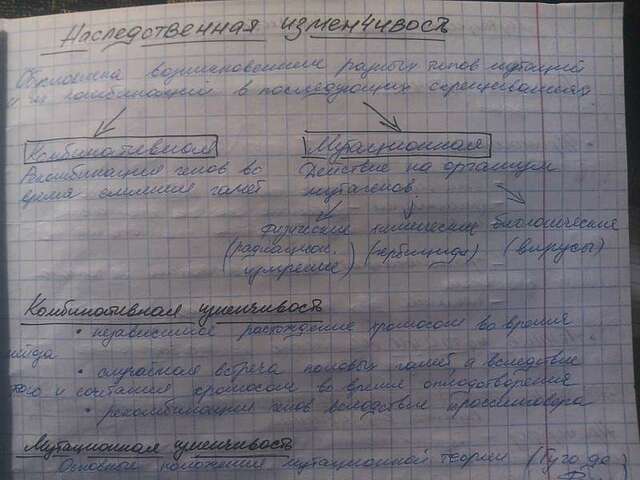 Наследственная изменчивость
Обусловлена возникновением разных типов мутаций
и их комбинаций в последующих скрещиваниях
Комбинативная Мутационная
Рекомбинация генов во Действие на организм
время слияния гамет мутагенов
физические химические биологические
(радиацион. (гербициды) (вирусы)
излучение)
Комбинативная изменчивость
• независимое расхождение хромосом во время
мейоза
• случайная встреча половых гамет, а вследствие
этого и сочетания хромосом во время оплодотворения
• рекомбинация генов вследствие кроссинговера
Мутационная изменчивость
Основные положения мутационной теории (Гуго де